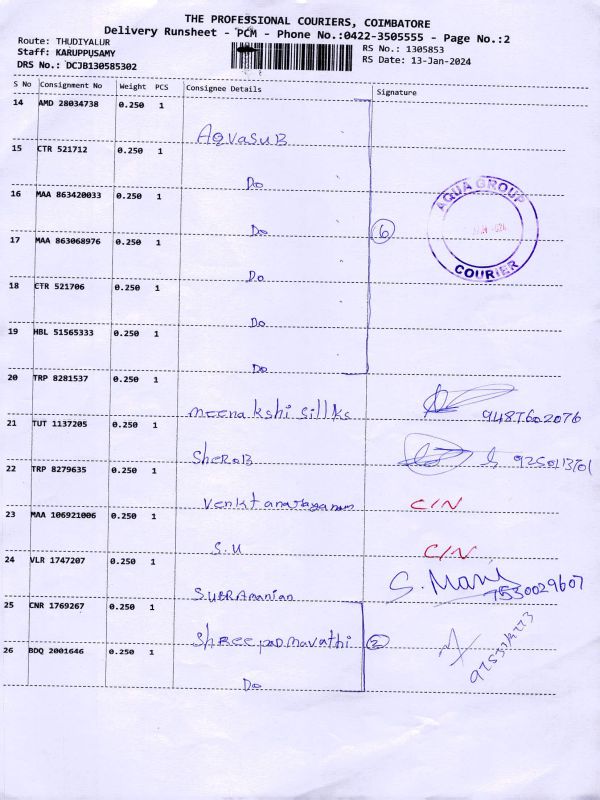 THE PROFESSIONAL COURIERS, COIMBATORE
Delivery Runsheet - PCM - Phone No.:0422-3505555 - Page No.:2
Route: THUDIYALUR
Staff: KARUPPUSAMY
RS No.: 1305853
DRS No.: DCJB130585302
RS Date: 13-Jan-2024
S No Consignment No Weight PCS Consignee Details Signature
14 AMD 28034738 0.250 1
AQVASUB
15 CTR 521712 0.250 1
Do
AQUA GROUP
COURIER
16 MAA 863420033 0.250 1
Do
6
17 MAA 863068976 0.250 1
Do
18 CTR 521706 0.250 1
Do
19 HBL 51565333 0.250 1
Do
20 TRP 8281537 0.250 1
meenakshi sillks 9487602076
21 TUT 1137205 0.250 1
SheroB
22 TRP 8279635 0.250 1
C/N
23 MAA 106921006 0.250 1
S.U C/N
24 VLR 1747207 0.250 1
SUBRAmanian S. Mani 7530029607
25 CNR 1769267 0.250 1
Shree padmavathi 2
26 BDQ 2001646 0.250 1
Do